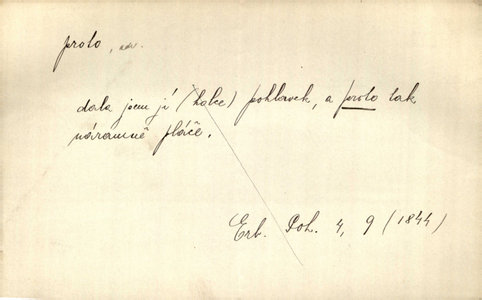 proto, adv.
dala jsem jí (holce) pohlavek, a proto tak
náramně pláče.
Erb. Poh. 4, 9 (1844)